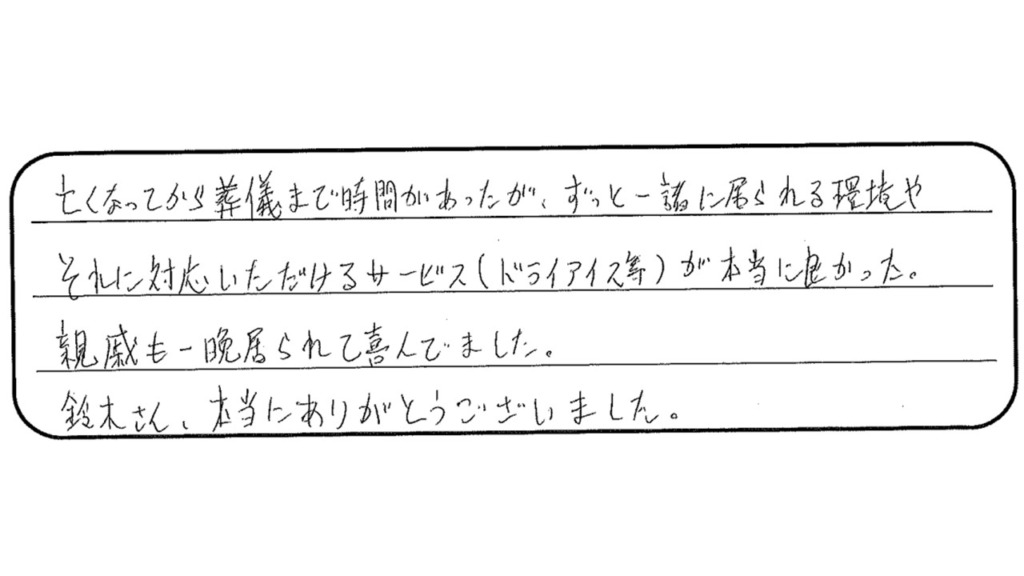 亡くなってから葬儀まで時間があったが、ずっと一諸に居られる環境や
それに対応いただけるサービス(ドライアイス等)が本当に良かった。
親戚も一晩居られて喜んでました。
鈴木さん、本当にありがとうございました。